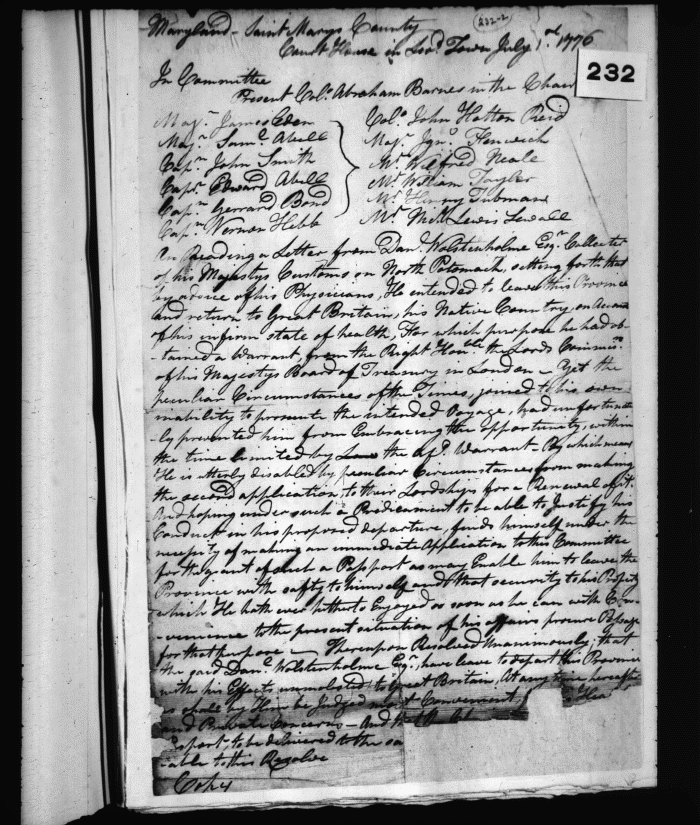 232-2
Maryland - Saint Marys County
Court House in Leod. Town July 1st. 1776
232
In Committee
Present Colo. Abraham Barnes in the Chair
Majr. James Eden
Majr. Saml. Abell
Capn. John Smith
Capn. Edward Abell
Capn. Gerrard Bond
Capn. Vernon Hebb
Colo. John Hatton Reid
Majr. Igns. Fenwick
Mr. Wilfred Neale
Mr. William Taylor
Mr. Henry Tubman
Mr. Lewis Sewall
On Reading a Letter from Danl. Wolstenholme Esqr. Collector
of his Majestys Customs on North Potomack, setting forth that
by advice of his Physicians, He intended to leave this Province
and return to Great Britain, his Native Country, on Account
of his infirm state of health, For which purpose he had ob-
-tained a Warrant, from the Right Honble. the Lords Commisrs.
of his Majestys Board of Treasury in London - Yet the
peculiar Circumstances of the Times, joined to his own
inability to prosecute the intended Voyage, had unfortunate
-ly prevented him from Embracing the Opportunity, within
the time limited by Law the afsd. Warrant - By which means
He is utterly disabled by peculiar Circumstances from making
the second application to their Lordships for a Renewal of it.
And hoping under such a Predicament to be able to Justify his
Conduct in his proposed departure, finds himself under the
necessity of making an immediate Application to this Committee
for the grant of such a Passport as may Enable him to leave the
Province with safty to himself and that security to his Property
which He hath ever hitherto Enjoyed as soon as he can with Con-
-venience to the present situation of his affairs procure Passage
for that purpose - Thereupon Resolved Unanimously that
the said Danl. Wolstenholme Esqr. have leave to depart this Province
with his Effects unmolested to Great Britain, At any time hereafter
as shall by Him be Judged most Convenient
and Private Concerns - And that
to be delivered to the
-able to this Resolve
Copy